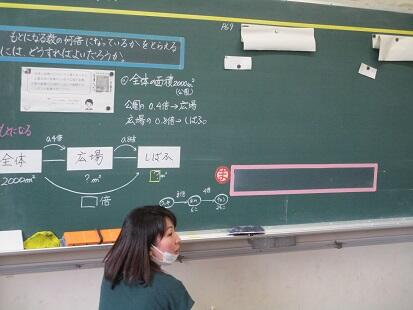 もとになる数の何倍になっているかをとらえる
には、どうすればよいだろうか。
A69
全体の面積2000m²
(公園)
公園の0.4倍→広場
広場の0.8倍→しばふ
もとになる
0.4倍
0.8倍
全体
広場
しばふ
2000m²
?m²
?m²
□倍
3倍
4倍